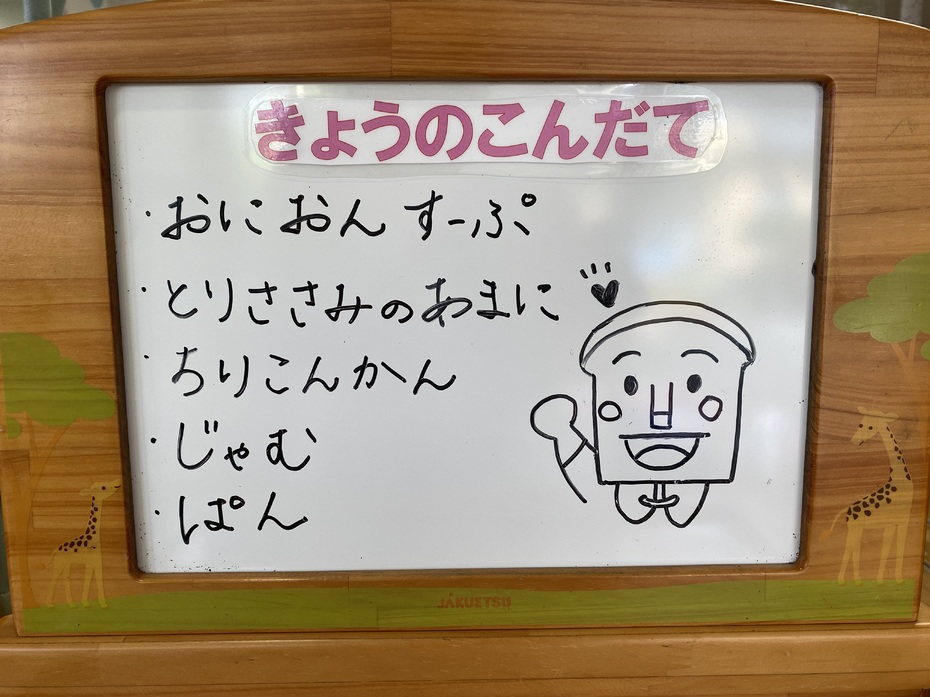 きょうのこんだて
・おにおん すーぷ
・とりささみのあまに
・ちりこんかん
・じゃむ
・ぱん
JAKUETSU